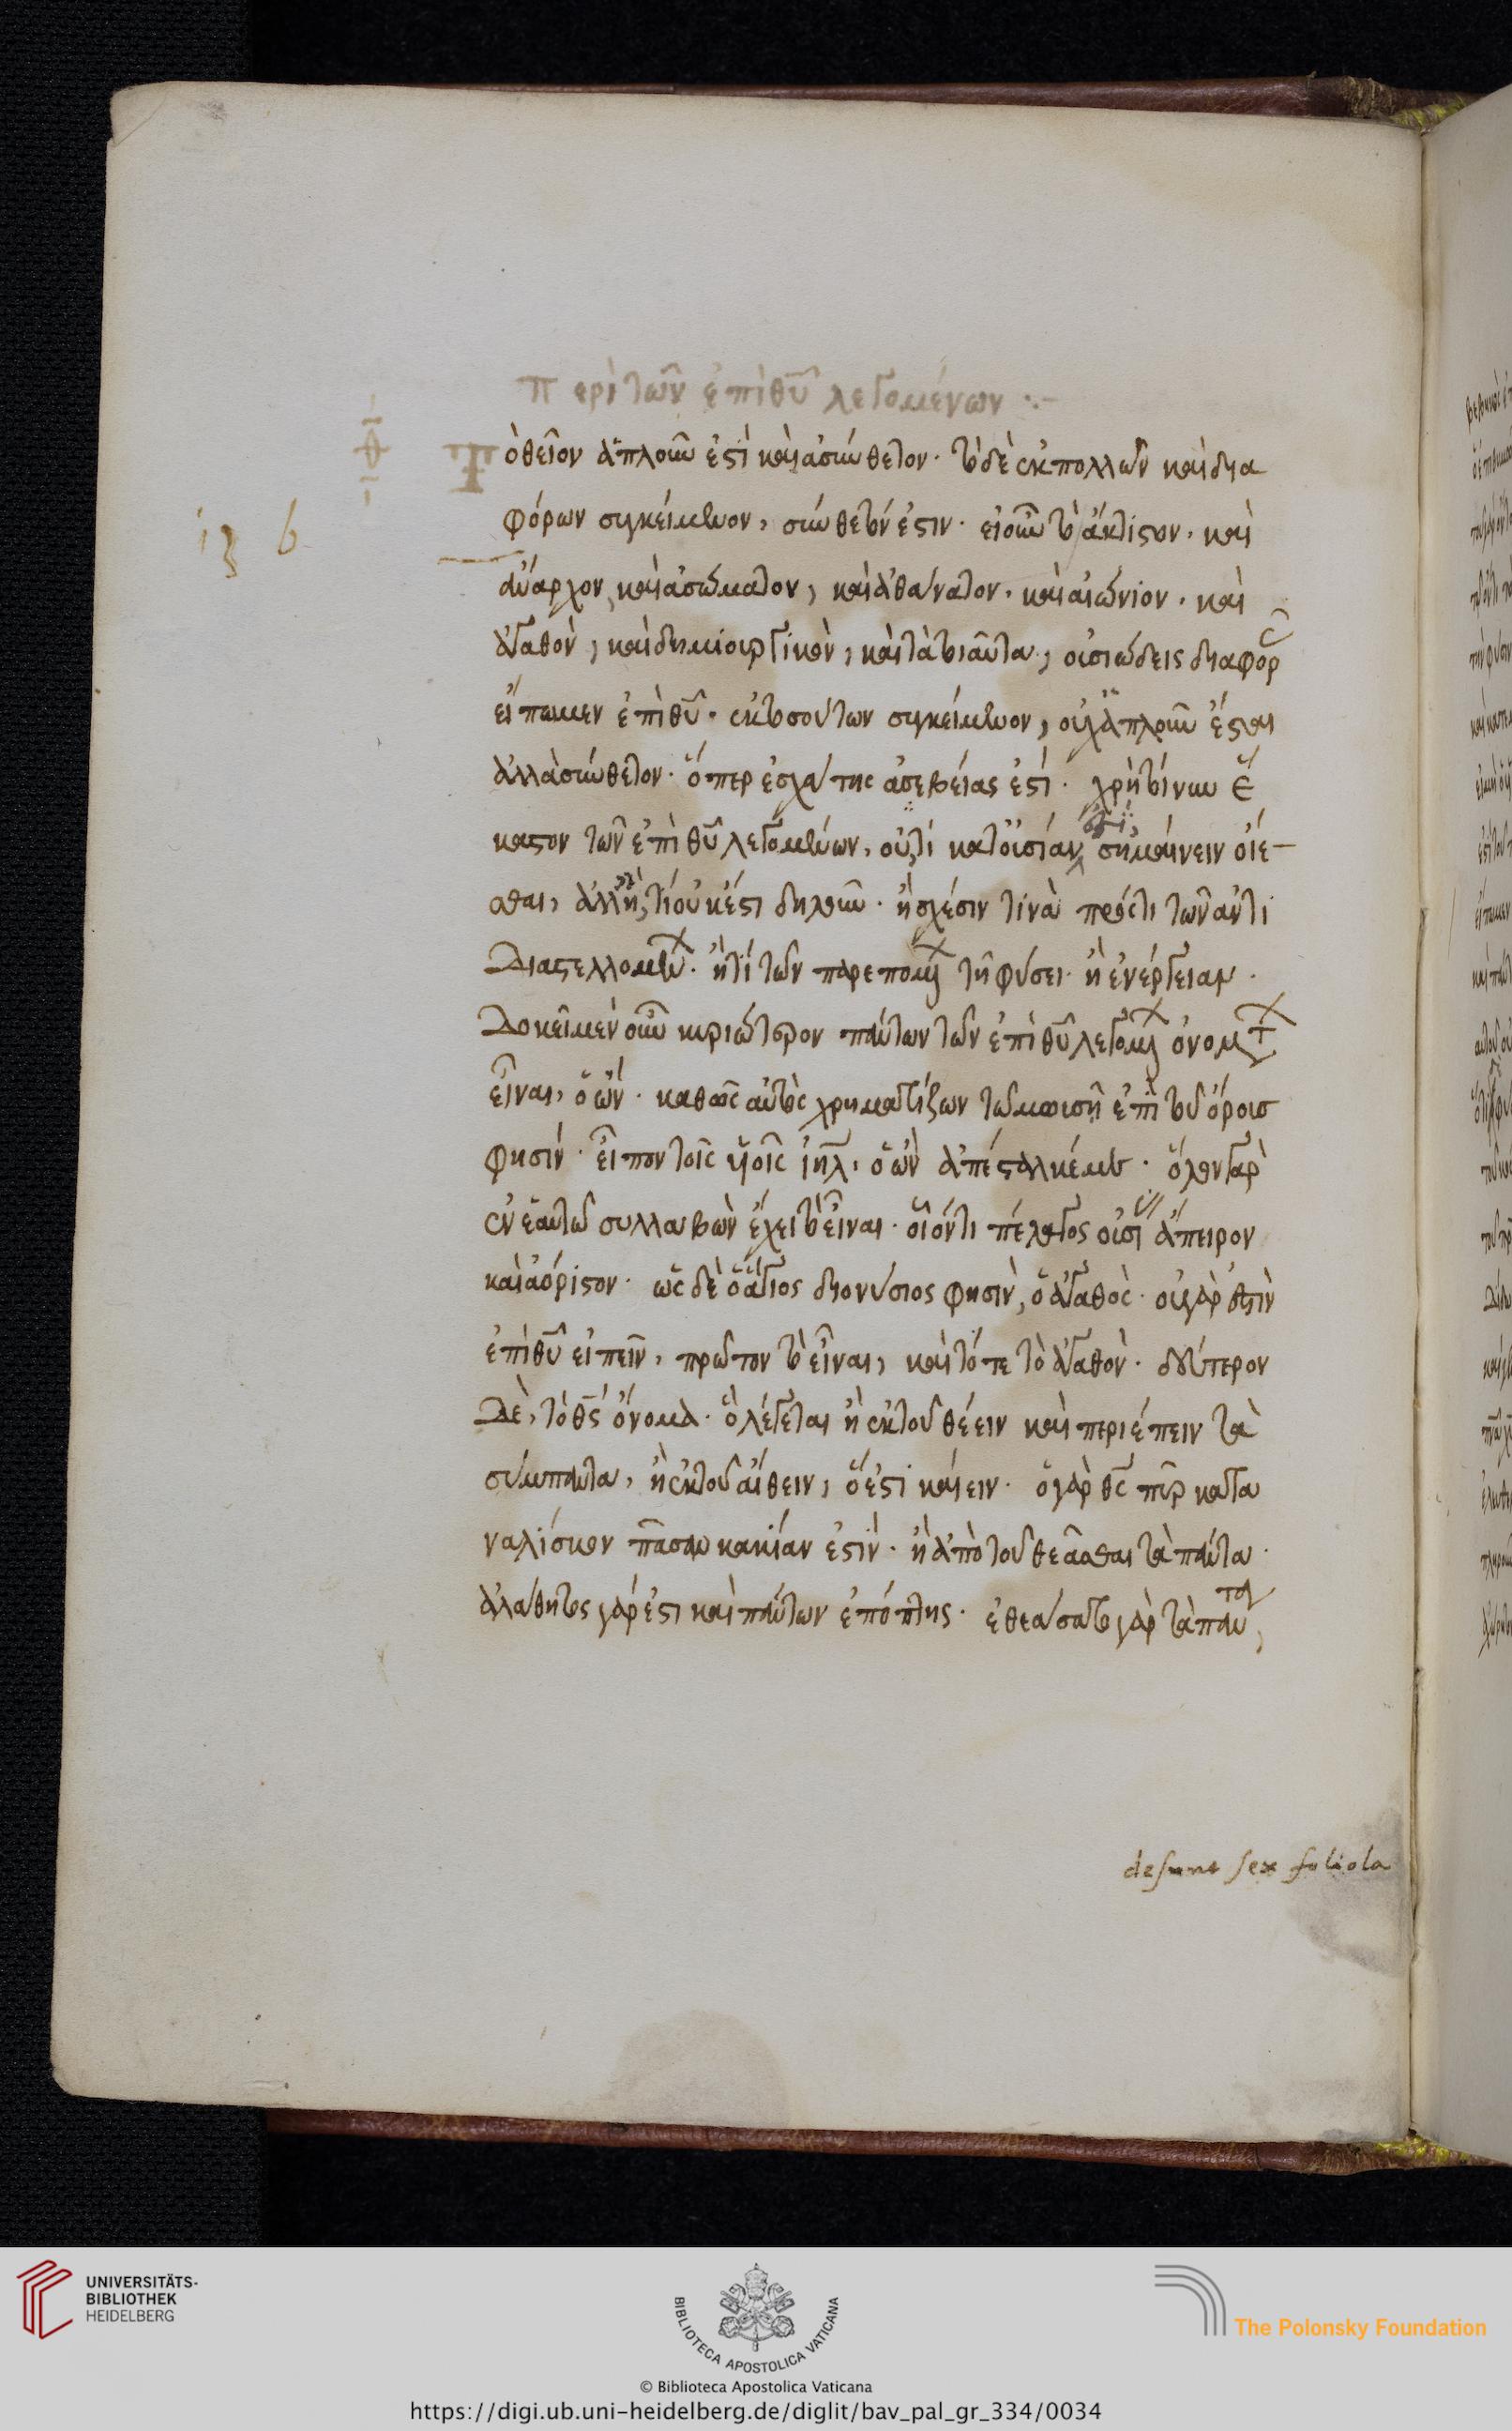 Περὶ τῶν ἐπὶ θυ λεγομένων :-
Τὸ θεῖον ἁπλοῦν ἐστὶ καὶ ἀσύνθετον· τὸ δὲ ἐκ πολλῶν καὶ δια
φόρων συγκείμενον, σύνθετόν ἐστιν· εἰ οὖν τὸ ἄκτιστον, καὶ
13 6
ἄναρχον, καὶ ἀσώματον, καὶ ἀθάνατον, καὶ αἰώνιον, καὶ
ἀγαθὸν, καὶ δημιουργικὸν, καὶ τὰ τοιαῦτα, οὐσιώδεις διαφορ
εἴπωμεν ἐπὶ θυ· ἐκ τοσούτων συγκείμενον, οὐχ ἁπλοῦν ἔσται
ἀλλὰ σύνθετον· ὅπερ ἐσχάτης ἀσεβείας ἐστί· χρὴ τοίνυν ἕ
καστον τῶν ἐπὶ θυ λεγομένων, οὐ τί κατ' οὐσίαν ἐστὶ σημαίνειν οἴε-
σθαι, ἀλλ' ἢ τί οὐκ ἔστι δηλοῦν· ἢ σχέσιν τινὰ πρός τι τῶν ἀντι
διαστελλομεν· ἤ τι τῶν παρεπομ τῇ φύσει· ἢ ἐνέργειαν·
δοκεῖ μὲν οὖν κυριώτερον πάντων τῶν ἐπὶ θυ λεγομ ὀνομτ
εἶναι, ὁ ὤν· καθὼς αὐτὸς χρηματίζων τῷ μωυσῇ ἐπὶ τοῦ ὄρους
φησίν· εἶπον τοῖς υἱοῖς ιηλ, ὁ ὢν ἀπέσταλκέ με· ὅλον γὰρ
ἐν ἑαυτῷ συλλαβὼν ἔχει τὸ εἶναι· οἷόν τι πέλαγος οὐσι ἄπειρον
καὶ ἀόριστον· ὡς δὲ ὁ ἅγιος διονύσιος φησὶν, ὁ ἀγαθός· οὐ γὰρ ἔστιν
ἐπὶ θυ εἰπεῖν, πρῶτον τὸ εἶναι, καὶ τότε τὸ ἀγαθόν· δεύτερον
δὲ, τὸ θς ὄνομα· ὃ λέγεται ἢ ἐκ τοῦ θέειν καὶ περιέπειν τὰ
σύμπαντα, ἢ ἐκ τοῦ αἴθειν, ὅ ἐστι καίειν· ὁ γὰρ θς πῦρ κατα
ναλίσκον πᾶσαν κακίαν ἐστίν· ἢ ἀπὸ τοῦ θεᾶσθαι τὰ πάντα·
ἀλάθητος γάρ ἐστι καὶ πάντων ἐπόπτης· ἐθεάσατο γὰρ τὰ πάντα
desunt sex foliola
UNIVERSITÄTS-
BIBLIOTHEK
HEIDELBERG
BIBLIOTECA APOSTOLICA VATICANA
The Polonsky Foundation
© Biblioteca Apostolica Vaticana
https://digi.ub.uni-heidelberg.de/diglit/bav_pal_gr_334/0034